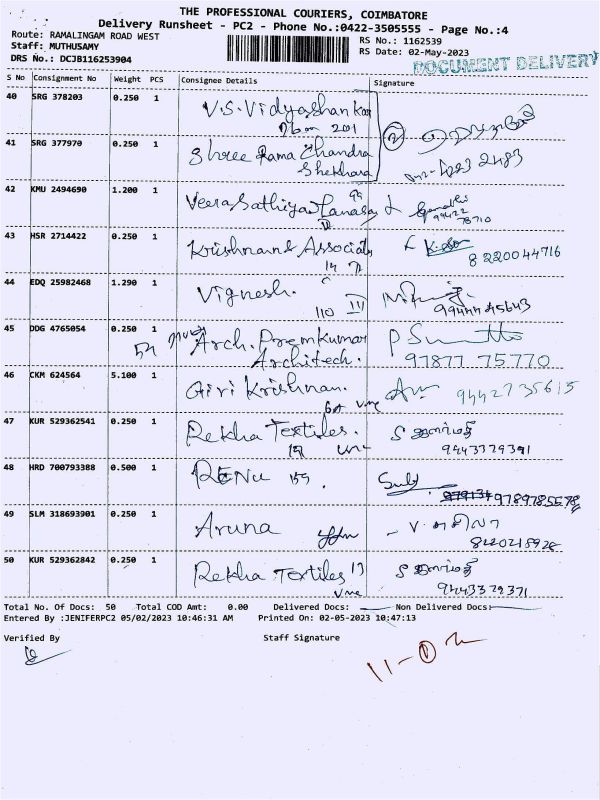 THE PROFESSIONAL COURIERS, COIMBATORE
Delivery Runsheet - PC2 - Phone No.:0422-3505555 - Page No.:4
Route: RAMALINGAM ROAD WEST
RS No.: 1162539
Staff: MUTHUSAMY
RS Date: 02-May-2023
DRS No.: DCJB116253904
DOCUMENT DELIVERY
S No Consignment No Weight PCS Consignee Details Signature
40 SRG 378203 0.250 1 V.S. Vidyashankar
201
41 SRG 377970 0.250 1 Shree Rama Chandra
Shekhara
42 KMU 2494690 1.200 1
99422
78710
43 HSR 2714422 0.250 1 Krishnan & Associats
8220044716
44 EDQ 25982468 1.290 1 Vignesh.
110 III 99444 45643
45 DDG 4765054 0.250 1 Arch. Premkumar
Architech.
97877 75770
46 CKM 624564 5.100 1 Giri Krishnan.
9442735615
47 KUR 529362541 0.250 1 Rekha Textiles.
9443329391
48 HRD 700793388 0.500 1 RENU 159.
49 SLM 318693901 0.250 1 Aruna
8220215928
50 KUR 529362842 0.250 1 Rekha Textiles
9443329371
Total No. Of Docs: 50 Total COD Amt: 0.00 Delivered Docs: Non Delivered Docs:
Entered By :JENIFERPC2 05/02/2023 10:46:31 AM Printed On: 02-05-2023 10:47:13
Verified By Staff Signature